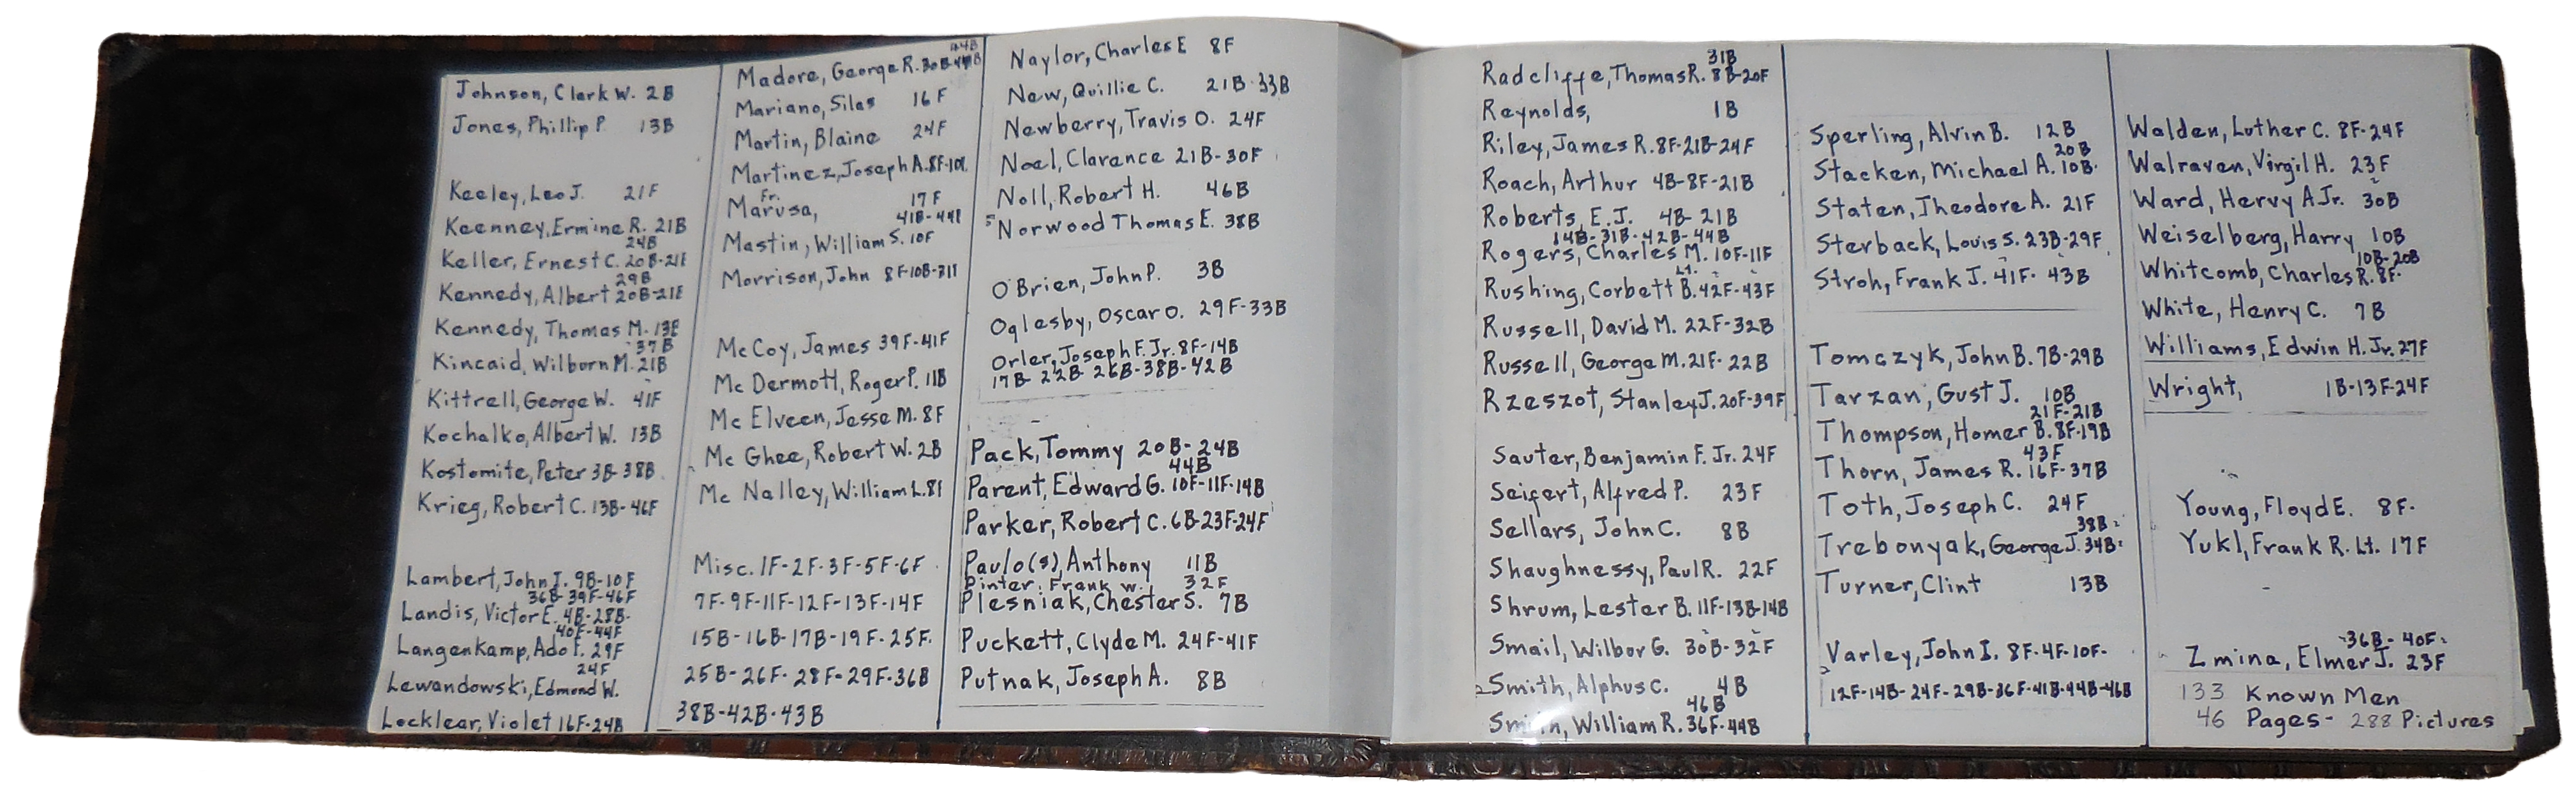 Johnson, Clark W. 2B
Jones, Phillip P. 13B
Keeley, Leo J. 21F
Keenney, Ermine R. 21B
24B
Keller, Ernest C. 20B-21F
29B
Kennedy, Albert 20B-21F
Kennedy, Thomas M. 13F
37B
Kincaid, Wilborn M. 21B
Kittrell, George W. 41F
Kochalko, Albert W. 13B
Kostomite, Peter 3B-38B
Krieg, Robert C. 13B-46F
Lambert, John I. 9B-10F
36B-39F-46F
Landis, Victor E. 4B-28B-
40F-44F
Langenkamp, Ado F. 29F
24F
Lewandowski, Edmond W.
Locklear, Violet 16F-24B
44B
Madore, George R. 30B-44B
Mariano, Silas 16F
Martin, Blaine 24F
Martinez, Joseph A. 8F-10F
Fr.
Marusa, 17F
41B-44F
Mastin, William S. 10F
Morrison, John 8F-10B-31F
McCoy, James 39F-41F
Mc Dermott, Roger P. 11B
Mc Elveen, Jesse M. 8F
Mc Ghee, Robert W. 2B
Mc Nalley, William L. 8F
Misc. 1F-2F-3F-5F-6F
7F-9F-11F-12F-13F-14F
15B-16B-17B-19F-25F.
25B-26F-28F-29F-36B
38B-42B-43B
Naylor, Charles E 8F
New, Quillie C. 21B-33B
Newberry, Travis O. 24F
Noel, Clarence 21B-30F
Noll, Robert H. 46B
Norwood Thomas E. 38B
O'Brien, John P. 3B
Oglesby, Oscar O. 29F-33B
Orler, Joseph F. Jr. 8F-14B
17B-22B-26B-38B-42B
Pack, Tommy 20B-24B
44B
Parent, Edward G. 10F-11F-14B
Parker, Robert C. 6B-23F-24F
Paulo(s), Anthony 11B
Pinter, Frank W. 32F
Plesniak, Chester S. 7B
Puckett, Clyde M. 24F-41F
Putnak, Joseph A. 8B
31B
Radcliffe, Thomas R. 8B-20F
Reynolds, 1B
Riley, James R. 8F-21B-24F
Roach, Arthur 4B-8F-21B
Roberts, E.J. 4B-21B
14B-31B-42B-44B
Rogers, Charles M. 10F-11F
Lt.
Rushing, Corbett B. 42F-43F
Russell, David M. 22F-32B
Russell, George M. 21F-22B
Rzeszot, Stanley J. 20F-39F
Sauter, Benjamin F. Jr. 24F
Seifert, Alfred P. 23F
Sellars, John C. 8B
Shaughnessy, Paul R. 22F
Shrum, Lester B. 11F-13B-14B
Smail, Wilbor G. 30B-32F
Smith, Alphus C. 4B
46B
Smith, William R. 36F-44B
Sperling, Alvin B. 12B
20B
Stacken, Michael A. 10B-
Staten, Theodore A. 21F
Sterback, Louis S. 23B-29F
Stroh, Frank J. 41F-43B
Tomczyk, John B. 7B-29B
Tarzan, Gust J. 10B
21F-21B
Thompson, Homer B. 8F-19B
43F
Thorn, James R. 16F-37B
Toth, Joseph C. 24F
38B-
Trebonyak, George J. 34B-
Turner, Clint 13B
Varley, John I. 8F-4F-10F-
12F-14B-24F-29B-36F-41B-44B-46B
Walden, Luther C. 8F-24F
Walraven, Virgil H. 23F
Ward, Hervy A Jr. 30B
Weiselberg, Harry 10B
10B-20B
Whitcomb, Charles R. 8F-
White, Henry C. 7B
Williams, Edwin H. Jr. 27F
Wright, 1B-13F-24F
Young, Floyd E. 8F-
Yukl, Frank R. Lt. 17F
36B-40F-
Zmina, Elmer J. 23F
133 Known Men
46 Pages - 288 Pictures